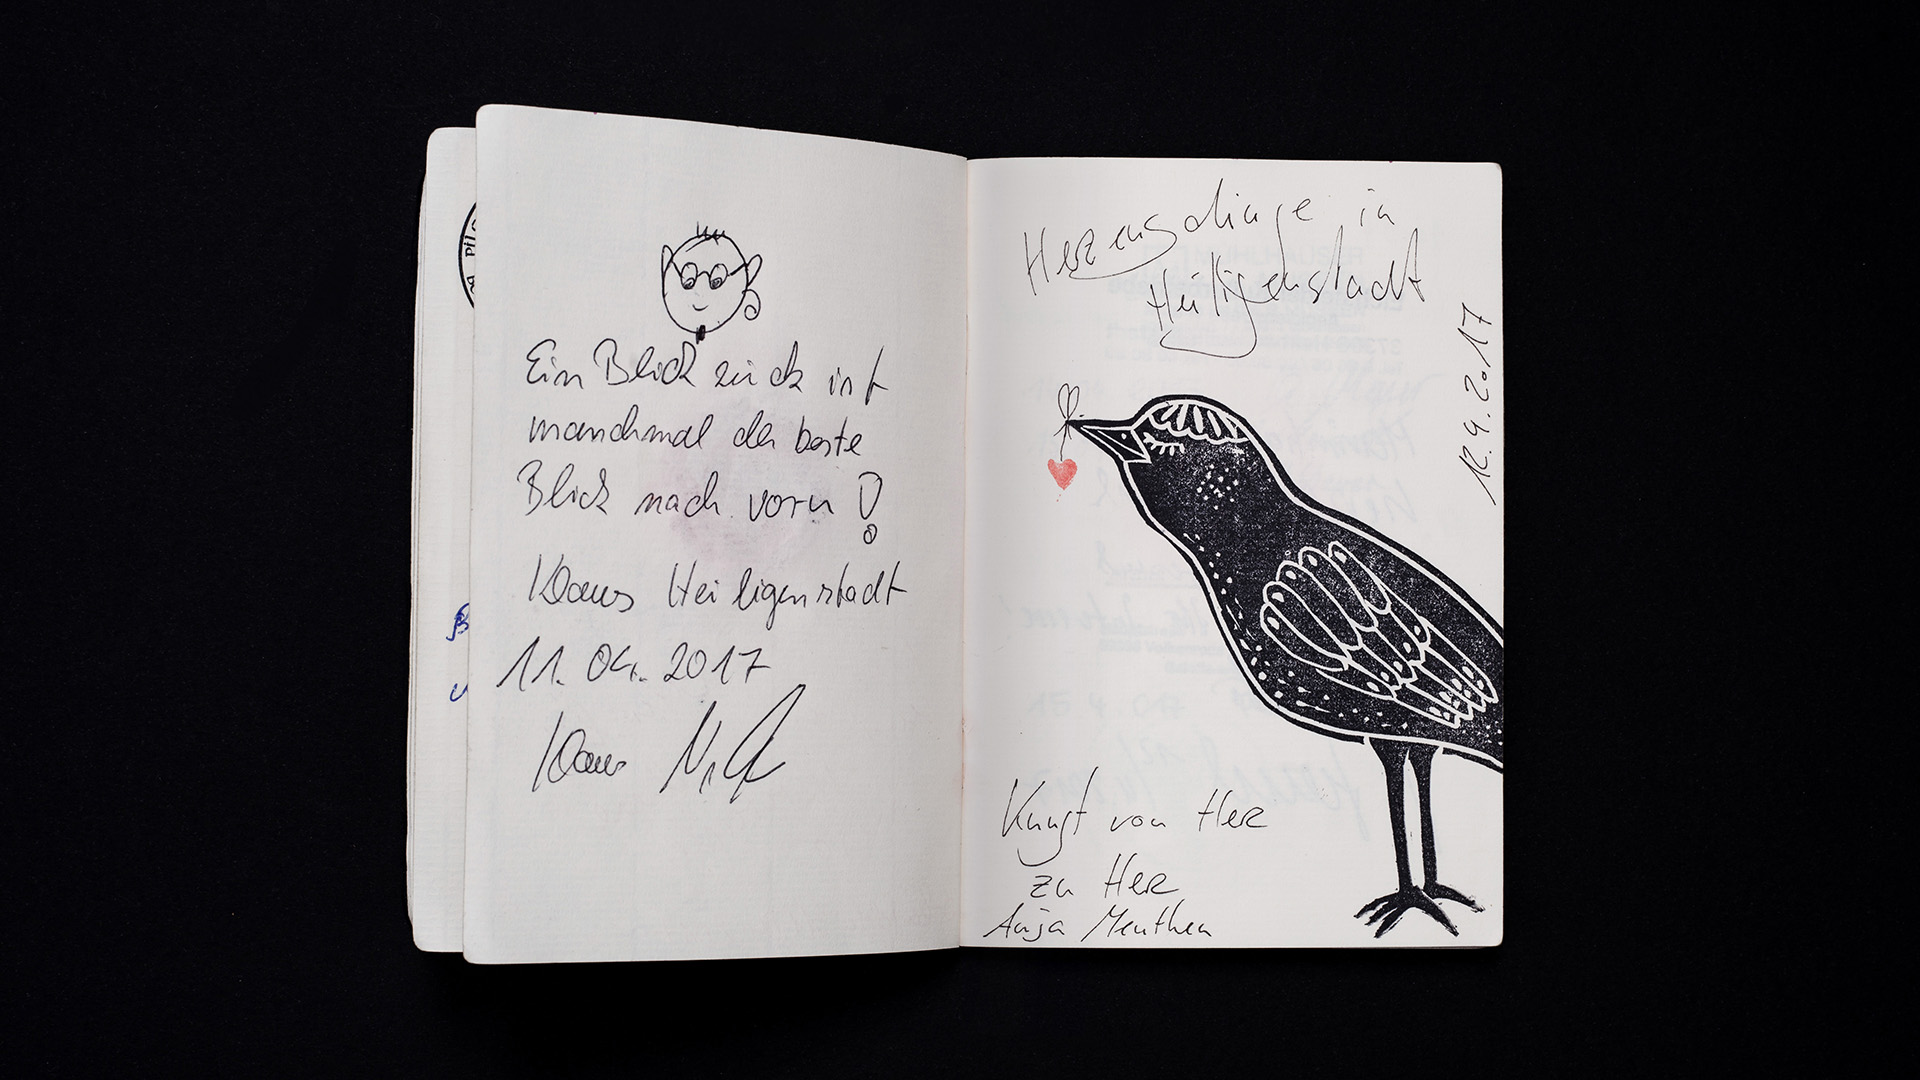 Ein Blick zurück ist
manchmal der beste
Blick nach vorn!
Klaus Heiligenstadt
11.04.2017
Klaus
Herzensdinge in
Heiligenstadt
12.4.2017
Kunst von Herz
zu Herz
Anja Menthen